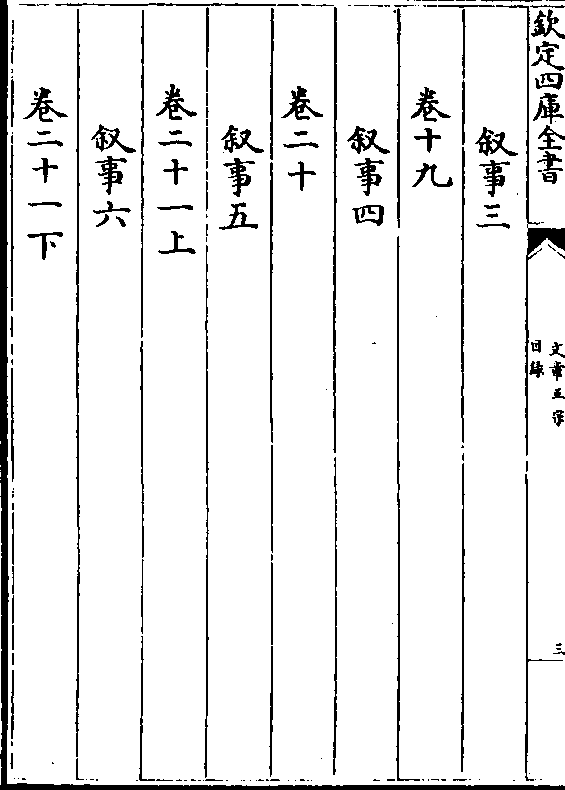 欽定四庫全書
文章正宗
目錄
三
叙事三
卷十九
叙事四
卷二十
叙事五
卷二十一上
叙事六
卷二十一下